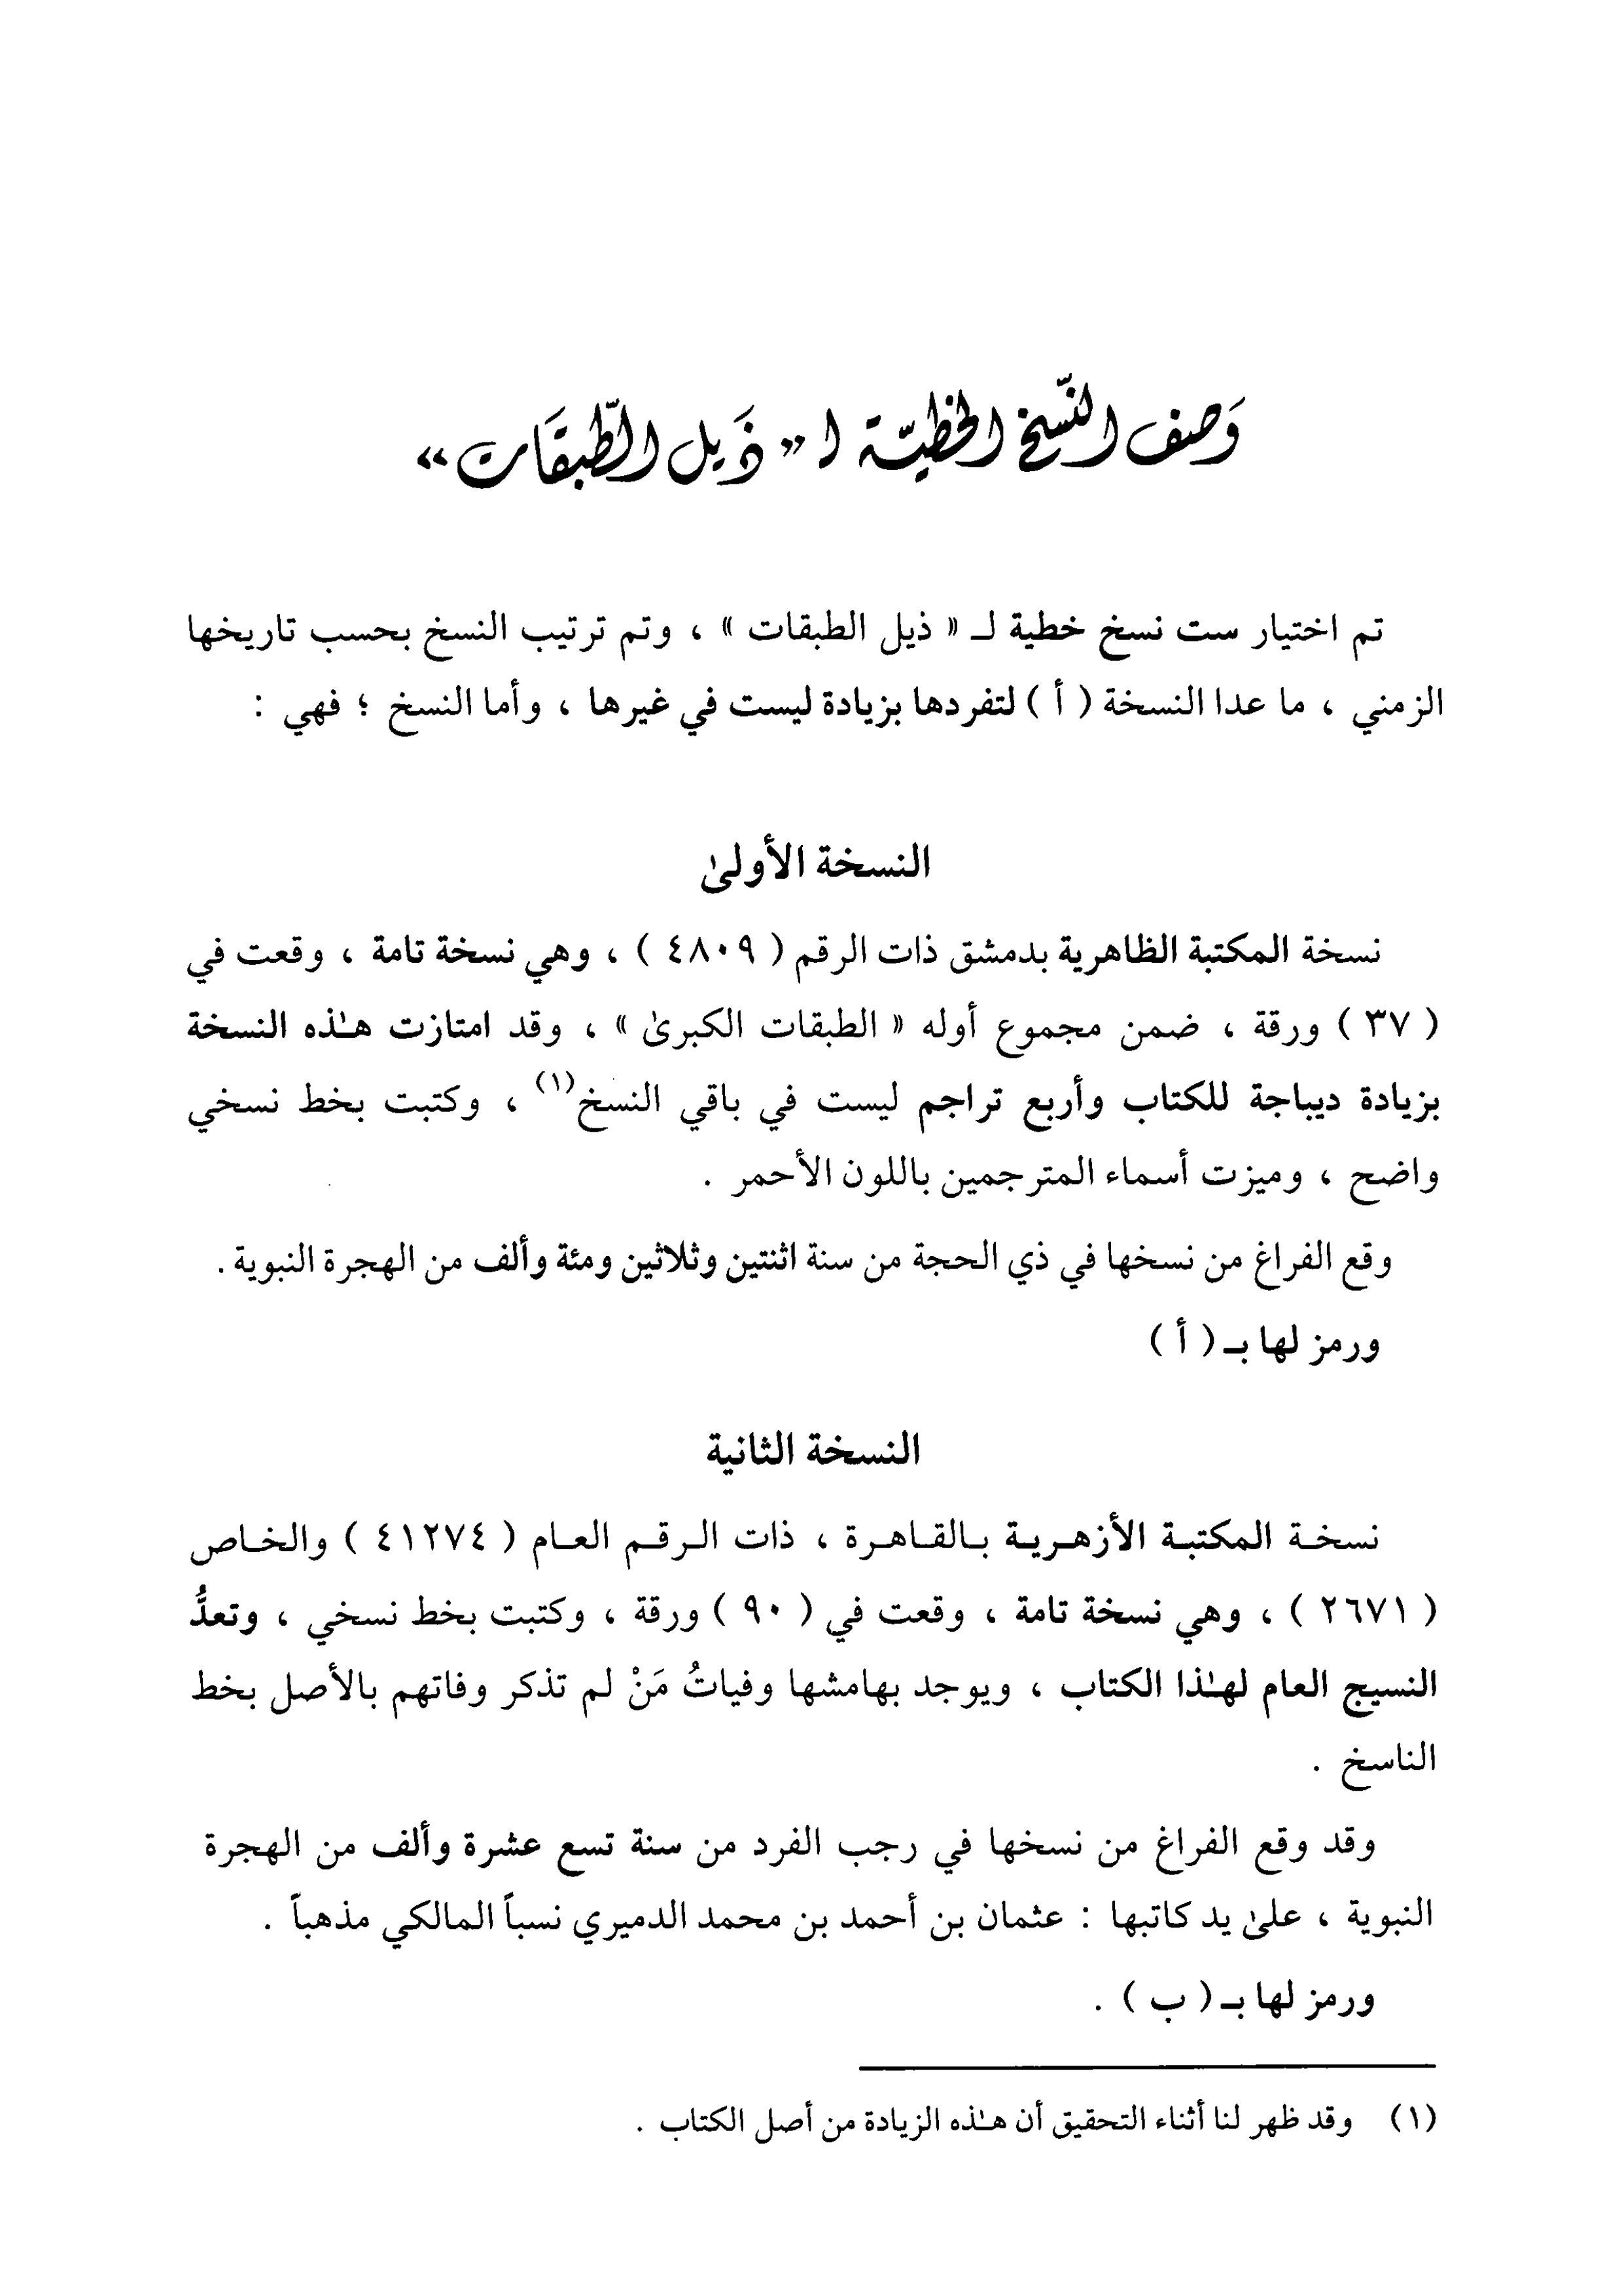 وَصف النّسخ الخطيّة لـ « ذَيل الطّبقَات »
تم اختيار ست نسخ خطية لـ « ذيل الطبقات » ، وتم ترتيب النسخ بحسب تاريخها
الزمني ، ما عدا النسخة ( أ ) لتفردها بزيادة ليست في غيرها ، وأما النسخ ؛ فهي :
النسخة الأولىٰ
نسخة المكتبة الظاهرية بدمشق ذات الرقم ( ٤٨٠٩ ) ، وهي نسخة تامة ، وقعت في
( ٣٧ ) ورقة ، ضمن مجموع أوله « الطبقات الكبرىٰ » ، وقد امتازت هـٰذه النسخة
بزيادة ديباجة للكتاب وأربع تراجم ليست في باقي النسخ(١) ، وكتبت بخط نسخي
واضح ، وميزت أسماء المترجمين باللون الأحمر .
وقع الفراغ من نسخها في ذي الحجة من سنة اثنتين وثلاثين ومئة وألف من الهجرة النبوية .
ورمز لها بـ ( أ )
النسخة الثانية
نسخة المكتبة الأزهرية بالقاهرة ، ذات الرقم العام ( ٤١٢٧٤ ) والخاص
( ٢٦٧١ ) ، وهي نسخة تامة ، وقعت في ( ٩٠ ) ورقة ، وكتبت بخط نسخي ، وتعدُّ
النسيج العام لهـٰذا الكتاب ، ويوجد بهامشها وفياتُ مَنْ لم تذكر وفاتهم بالأصل بخط
الناسخ .
وقد وقع الفراغ من نسخها في رجب الفرد من سنة تسع عشرة وألف من الهجرة
النبوية ، علىٰ يد كاتبها : عثمان بن أحمد بن محمد الدميري نسباً المالكي مذهباً .
ورمز لها بـ ( ب ) .
(١) وقد ظهر لنا أثناء التحقيق أن هـٰذه الزيادة من أصل الكتاب .